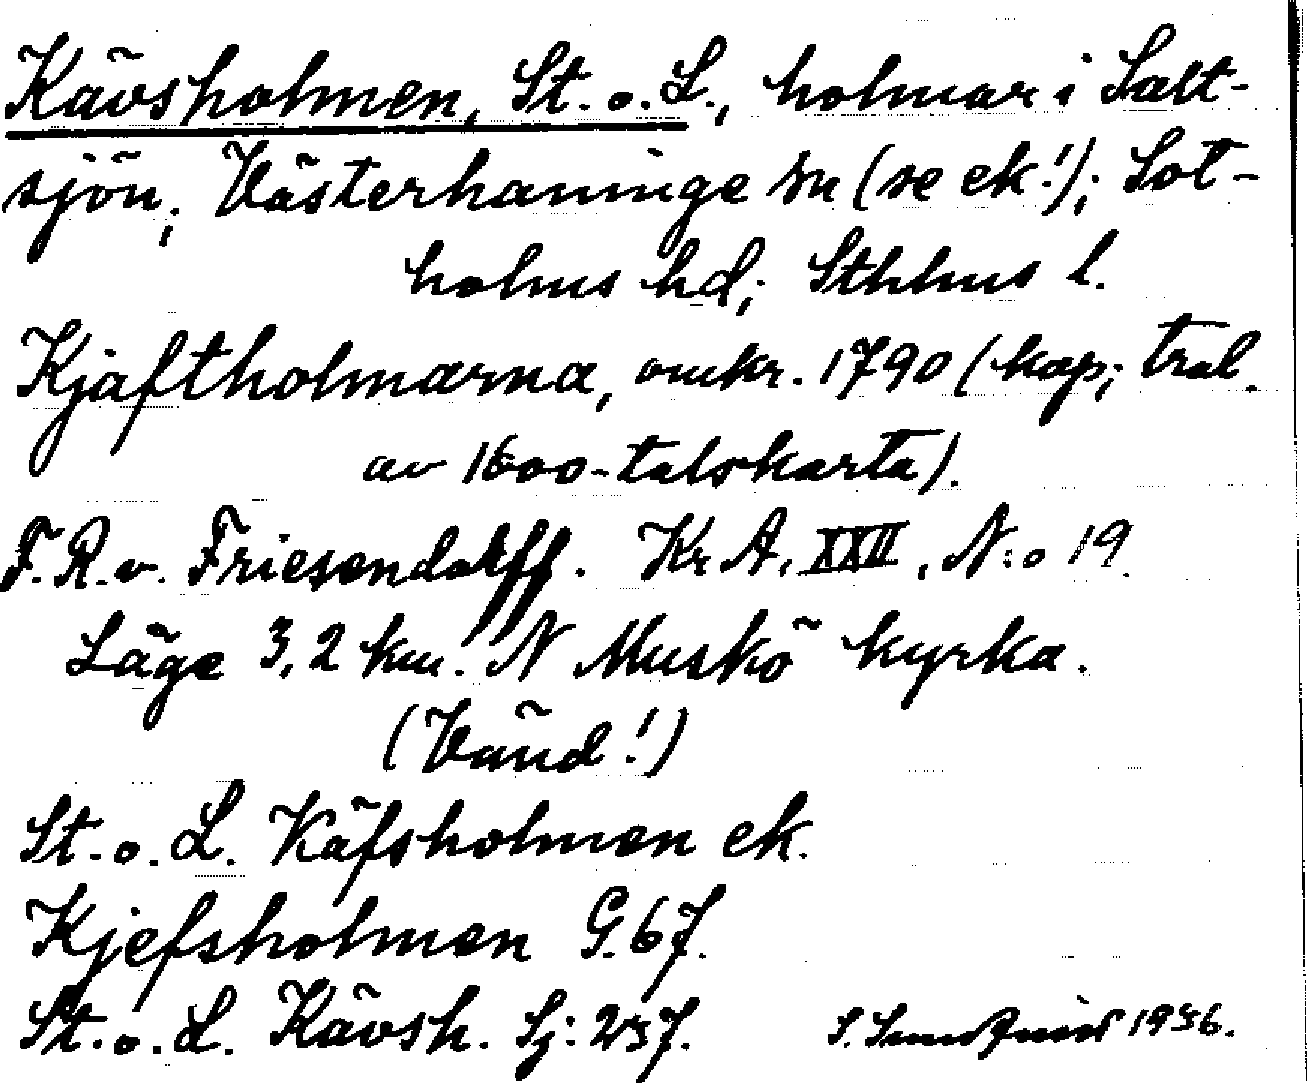 Kävsholmen, St. o. L., holmar i Salt-
sjön; Västerhaninge sn (se ek!); Sot-
holms hd; Sthlms l.
Kjäftholmarna, omkr. 1790 (kop; trol.
av 1600-talskarta).
F. R. v. Friesendorff. Kr A, XXII, N:o 19.
Läge 3,2 km. N Muskö kyrka.
(Vänd!)
St. o. L. Käfsholmen ek.
Kjefsholmen G. 67.
St. o. L. Kävsh. Sj: 257.
S. 1936.